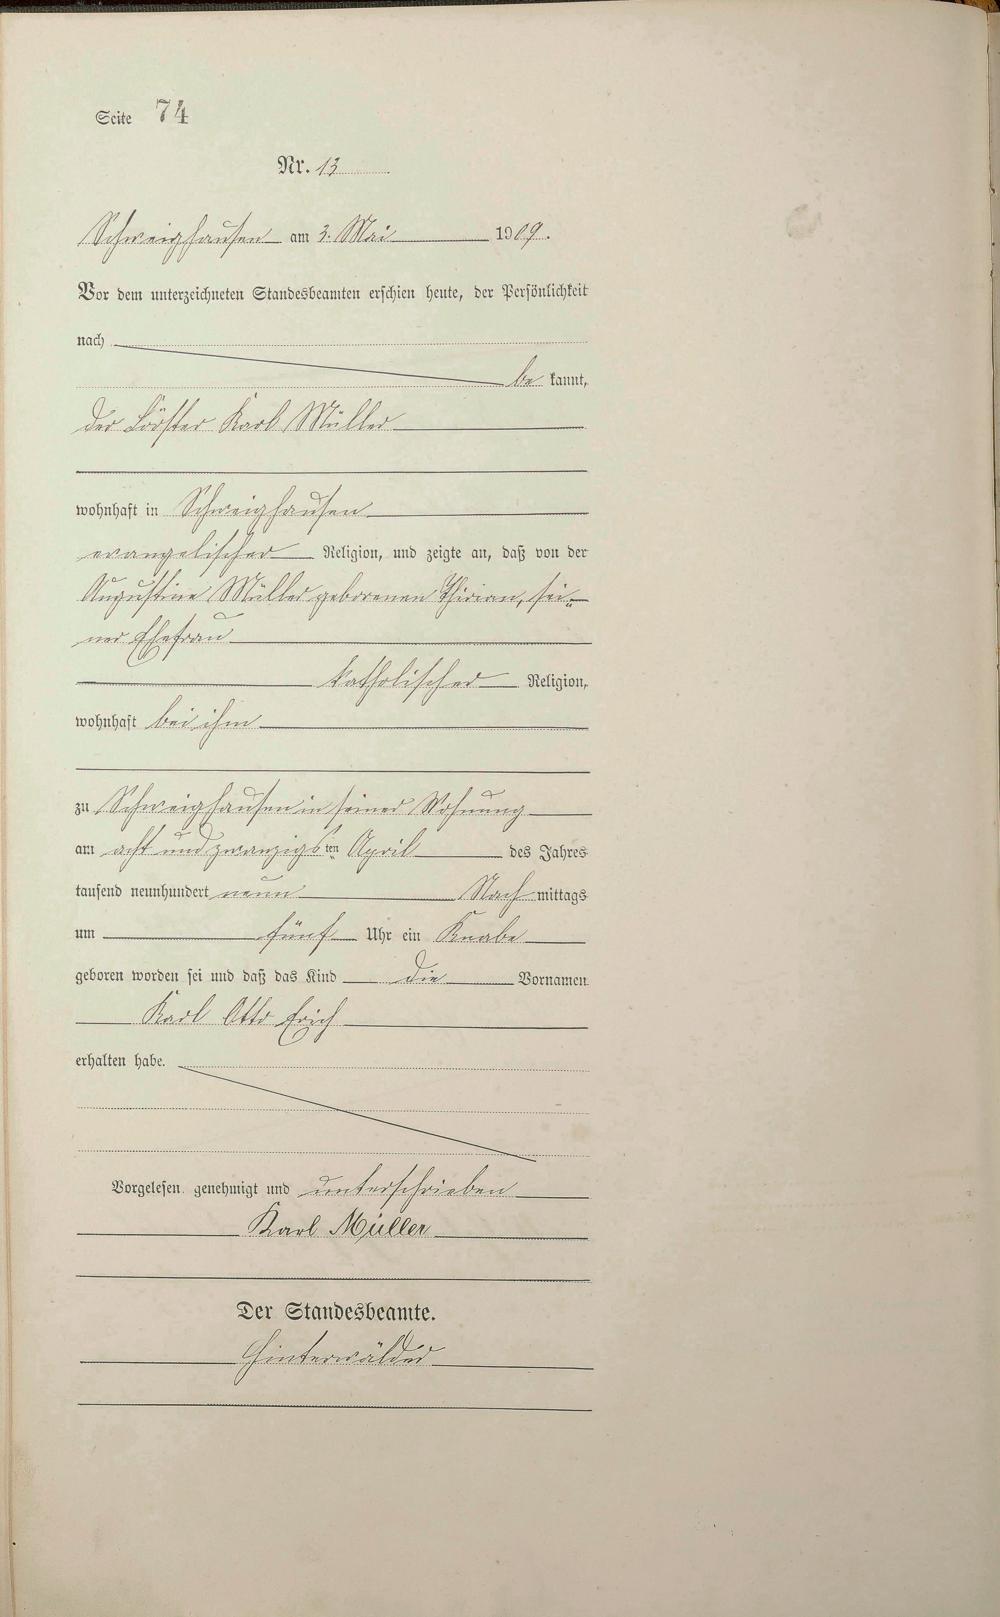 Seite 74
Nr. 13
Schweighausen am 3. Mai 1909.
Vor dem unterzeichneten Standesbeamten erschien heute, der Persönlichkeit
nach
be kannt,
der Förster Karl Müller
wohnhaft in Schweighausen
evangelischer Religion, und zeigte an, daß von der
Augustine Müller geborenen Thirian, sei„
ner Ehefrau
katholischer Religion,
wohnhaft bei ihm
zu Schweighausen in seiner Wohnung
am acht und zwanzigs ten April des Jahres
tausend neunhundert neun Nach mittags
um fünf Uhr ein Knabe
geboren worden sei und daß das Kind die Vornamen
Karl Otto Erich
erhalten habe.
Vorgelesen, genehmigt und unterschrieben
Karl Müller
Der Standesbeamte.
Hinterwälder